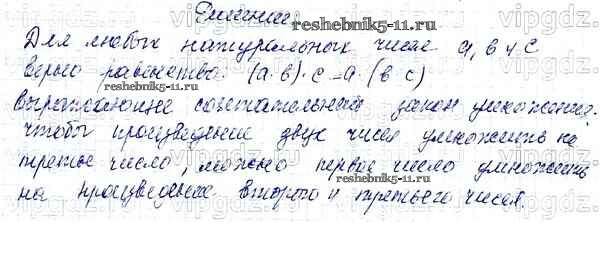 Решение:
reshebnik5-11.ru
Для любых натуральных чисел a, b и c
верно равенство: (a·b)·c=a·(b c)
выражающее сочетательный закон умножения.
чтобы произведение двух чисел умножить на
третье число, можно первое число умножить
reshebnik5-11.ru
на произведение второго и третьего чисел.
vipgdz.com